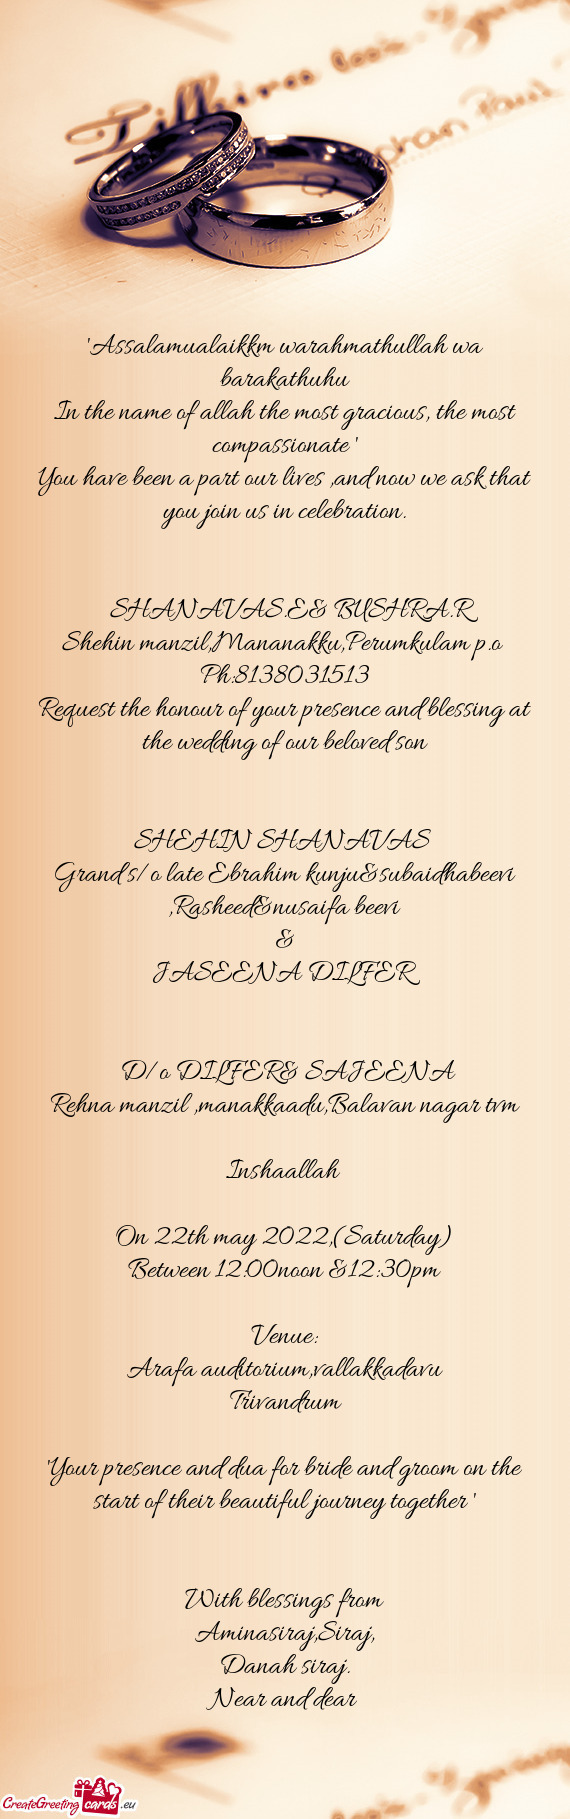 "Assalamualaikkm warahmathullah wa
barakathuhu
In the name of allah the most gracious, the most
compassionate "
You have been a part our lives ,and now we ask that
you join us in celebration.
SHANAVAS.E& BUSHRA.R
Shehin manzil,Mananakku,Perumkulam p.o
Ph:8138031513
Request the honour of your presence and blessing at
the wedding of our beloved son
SHEHIN SHANAVAS
Grand s/o late Ebrahim kunju&subaidhabeevi
,Rasheed&nusaifa beevi
&
JASEENA DILFER
D/o DILFER& SAJEENA
Rehna manzil ,manakkaadu,Balavan nagar tvm
Inshaallah
On 22th may 2022,(Saturday)
Between 12:00noon &12:30pm
Venue:
Arafa auditorium,vallakkadavu
Trivandrum
"Your presence and dua for bride and groom on the
start of their beautiful journey together "
With blessings from
Aminasiraj,Siraj,
Danah siraj.
Near and dear
CreateGreetingcards.eu